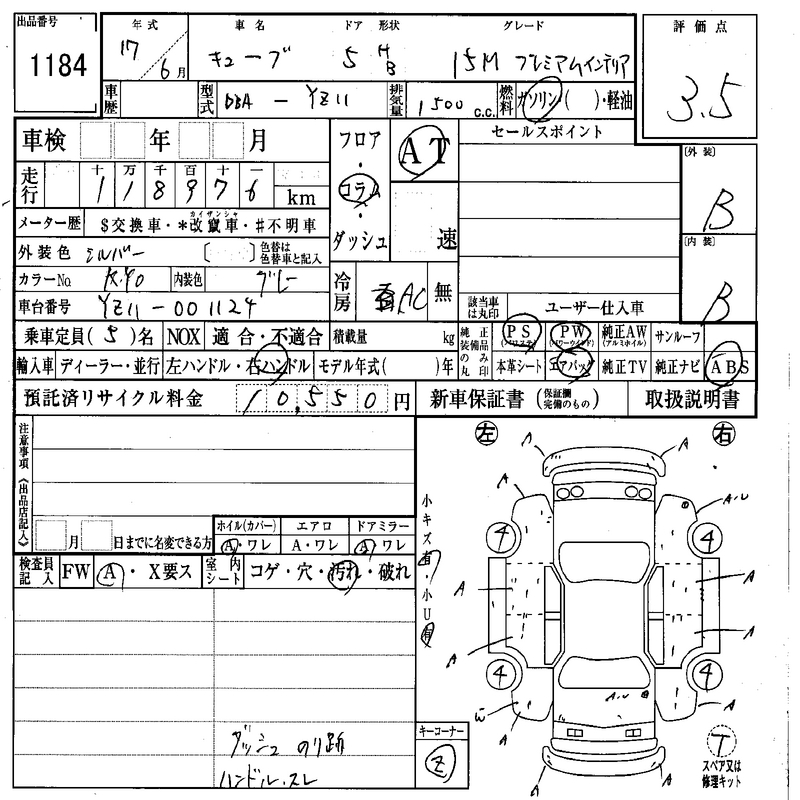 出品番号 年式 車名 ドア 形状 グレード 評価点
1184 17/6月 キューブ 5 HB 15M プレミアムインテリア 3.5
車歴 型式 DBA - YZ11 排気量 1500 c.c. 燃料 ガソリン( )・軽油
車検 年 月 フロア・コラム・ダッシュ AT 速 セールスポイント [外装] B
走行 十 万 千 百 十 一
118976 km
メーター歴 $交換車・*改竄車・#不明車
カイザンシャ
外装色 シルバー [ ] 色替は色替車と記入 [内装] B
カラーNo. KY0 内装色 グレー 冷房 AC 無
車台番号 YZ11-001124 該当車は丸印 ユーザー仕入車
乗車定員(5)名 NOX 適合・不適合 積載量 kg 純正装備品のみ丸印 PS(パワステ) PW(パワーウインド) 純正AW(アルミホイル) サンルーフ
輸入車 ディーラー・並行 左ハンドル・右ハンドル モデル年式( )年 本革シート エアバッグ 純正TV 純正ナビ ABS
預託済リサイクル料金 10,550円 新車保証書(保証欄完備のもの) 取扱説明書
注意事項《出品店記入》
左 右
A A
A A・U
小キズ有・小U有
4 4
A A
A A
4 4
A・U
W A
A
A A
月 日までに名変できる方 ホイル(カバー) エアロ ドアミラー
A・ワレ A・ワレ A・ワレ
検査員記入 FW A・X要ス 室内シート コゲ・穴・汚れ・破れ
ダッシュ のり跡
ハンドル.スレ
キーコーナー
Z
T
スペア又は
修理キット